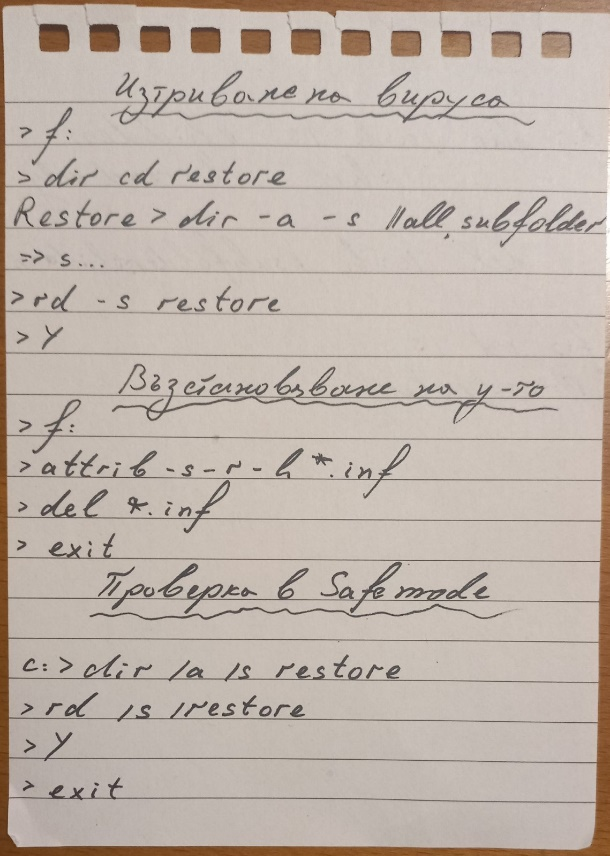 Изтриване на вируса
> f:
> dir cd restore
Restore > dir -a -s //all, subfolder
=> s...
>rd -s restore
> Y
Възстановяване на у-то
> f:
> attrib -s -r -h *.inf
> del *.inf
> exit
Проверка в Safe mode
c:> dir /a /s restore
> rd /s /restore
> Y
> exit